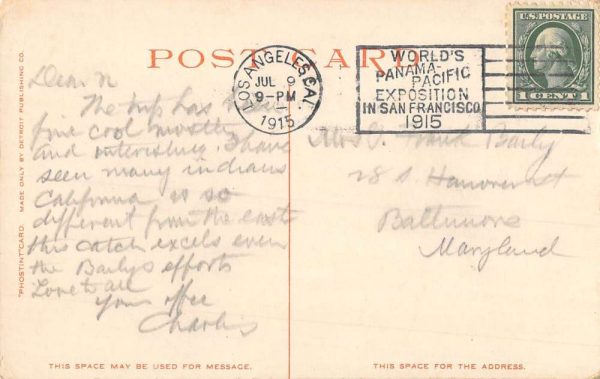 POST CARD
LOS ANGELES, CAL.
JUL 9
9-PM
1915
WORLD'S
PANAMA-
PACIFIC
EXPOSITION
IN SAN FRANCISCO
1915
U.S. POSTAGE
1 CENT 1
Dear
The trip has been
fine cool mostly
and interesting. I have
seen many indians
California is so
different from the east
this catch excels even
the Bailys efforts
Love to all
Your
Charles
Frank Baily
28 S. Hanover st
Baltimore
Maryland
"PHOSTINT" CARD. MADE ONLY BY DETROIT PUBLISHING CO.
THIS SPACE MAY BE USED FOR MESSAGE.
THIS SPACE FOR THE ADDRESS.